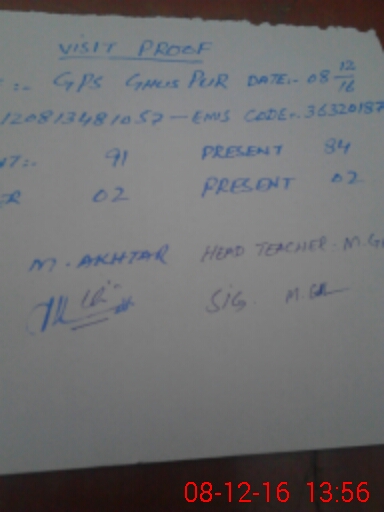 VISIT PROOF
:- GPS GHUS PUR DATE:- 08 12/16
120813481057 - EMIS CODE:- 36320187
NT:- 91 PRESENT 84
ER 02 PRESENT 02
M. AKHTAR HEAD TEACHER. M.G
SIG.
08-12-16 13:56